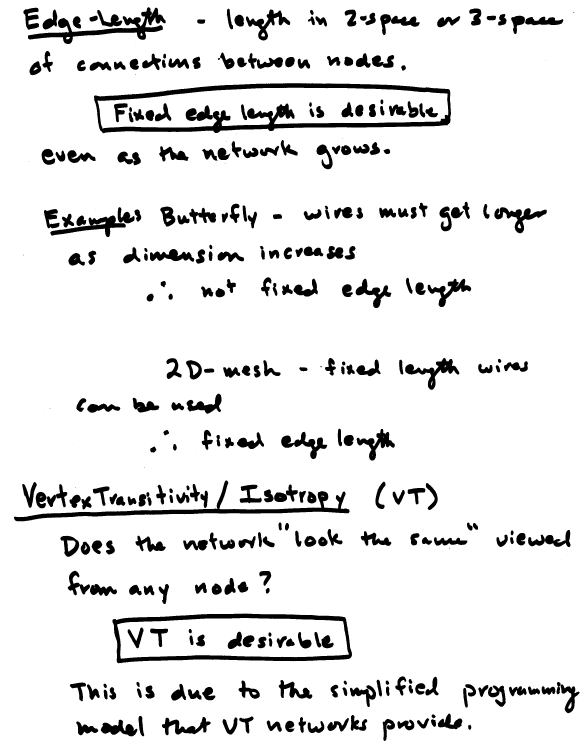 Edge-Length - length in 2-space or 3-space
of connections between nodes.
Fixed edge length is desirable,
even as the network grows.
Examples Butterfly - wires must get longer
as dimension increases
∴ not fixed edge length
2D-mesh - fixed length wires
can be used
∴ fixed edge length
Vertex Transitivity / Isotropy (VT)
Does the network "look the same" viewed
from any node?
VT is desirable
This is due to the simplified programming
model that VT networks provide.